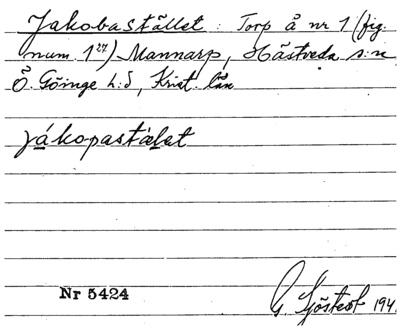 Jakobastället: Torp å nr 1 (fig.
num. 1²⁷) Mannarp, Hästveda s:n
Ö. Göinge h:d, Krist. län
jákopastälet
Nr 5424
G. Sjöstedt 194